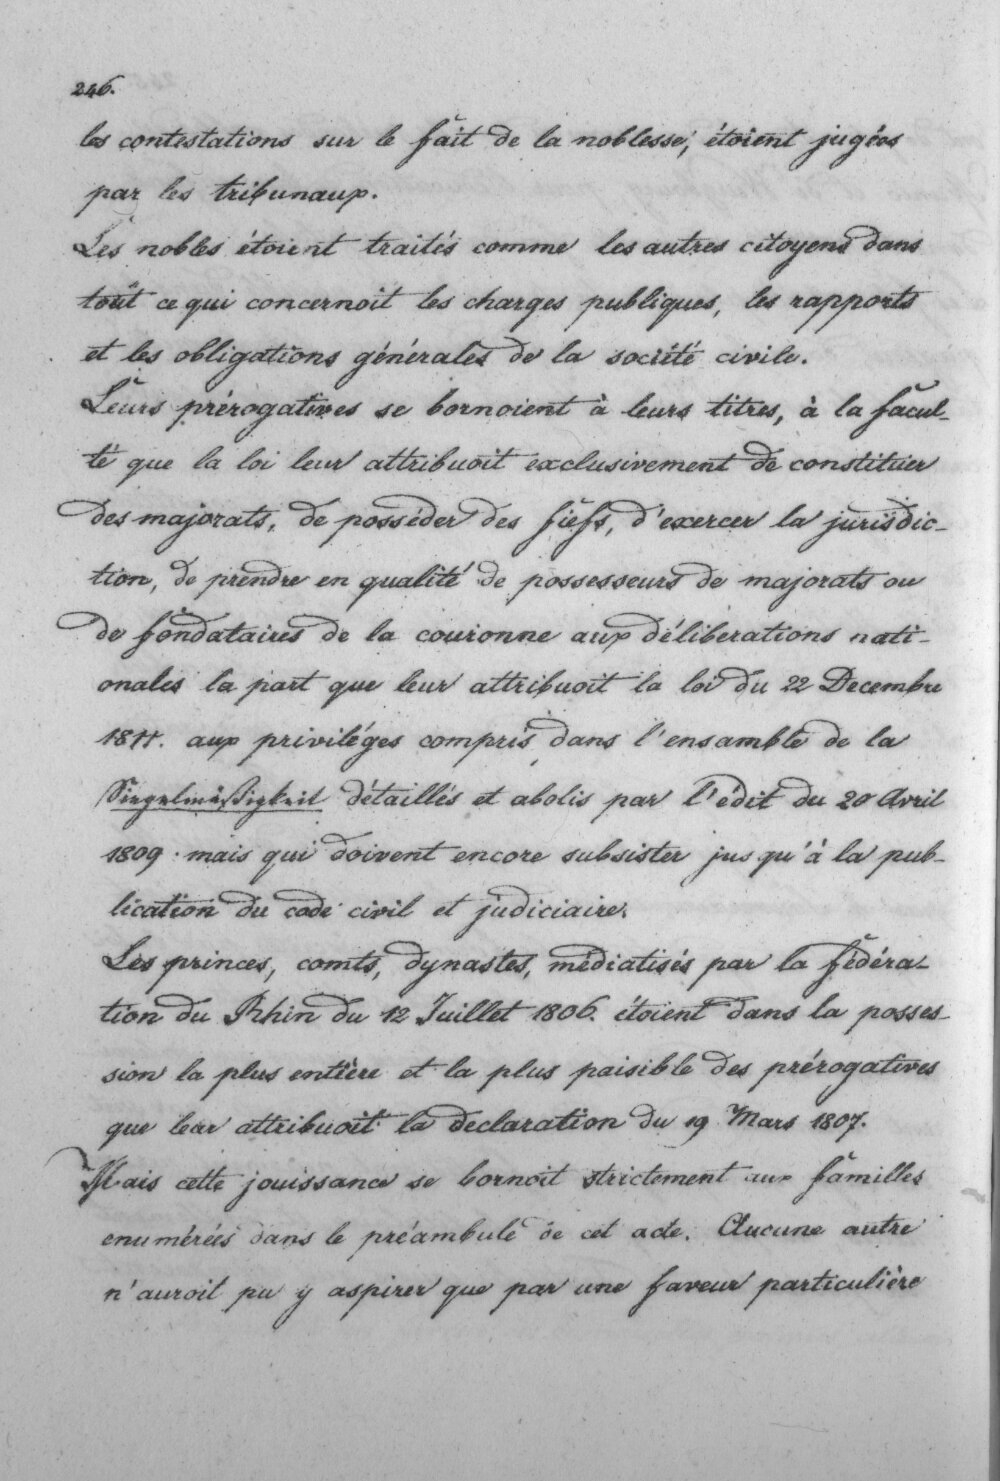 246.
les contestations sur le fait de la noblesse, étoient jugées
par les tribunaux.
Les nobles étoient traités comme les autres citoyens dans
tout ce qui concernoit les charges publiques, les rapports
et les obligations générales de la société civile.
Leurs prérogatives se bornoient à leurs titres, à la facul-
té que la loi leur attribuoit exclusivement de constituer
des majorats, de posséder des fiefs, d'exercer la jurisdic-
tion, de prendre en qualité de possesseurs de majorats ou
de fondataires de la couronne aux déliberations nati-
onales la part que leur attribuoit la loi du 22 Decembre
1811. aux priviléges compris dans l'ensamble de la
Siegelmäßigkeit détaillés et abolis par l'édit du 20 Avril
1809. mais qui doivent encore subsister jusqu'à la pub-
lication du code civil et judiciaire.
Les princes, comts, dynastes, médiatisés par la fédéra-
tion du Rhin du 12 Juillet 1806. étoient dans la posses-
sion la plus entière et la plus paisible des prérogatives
que leur attribuoit la declaration du 19 Mars 1807.
Mais cette jouissance se bornoit strictement aux familles
enumérées dans le préambule de cet acte. Aucune autre
n'auroit pu y aspirer que par une faveur particulière